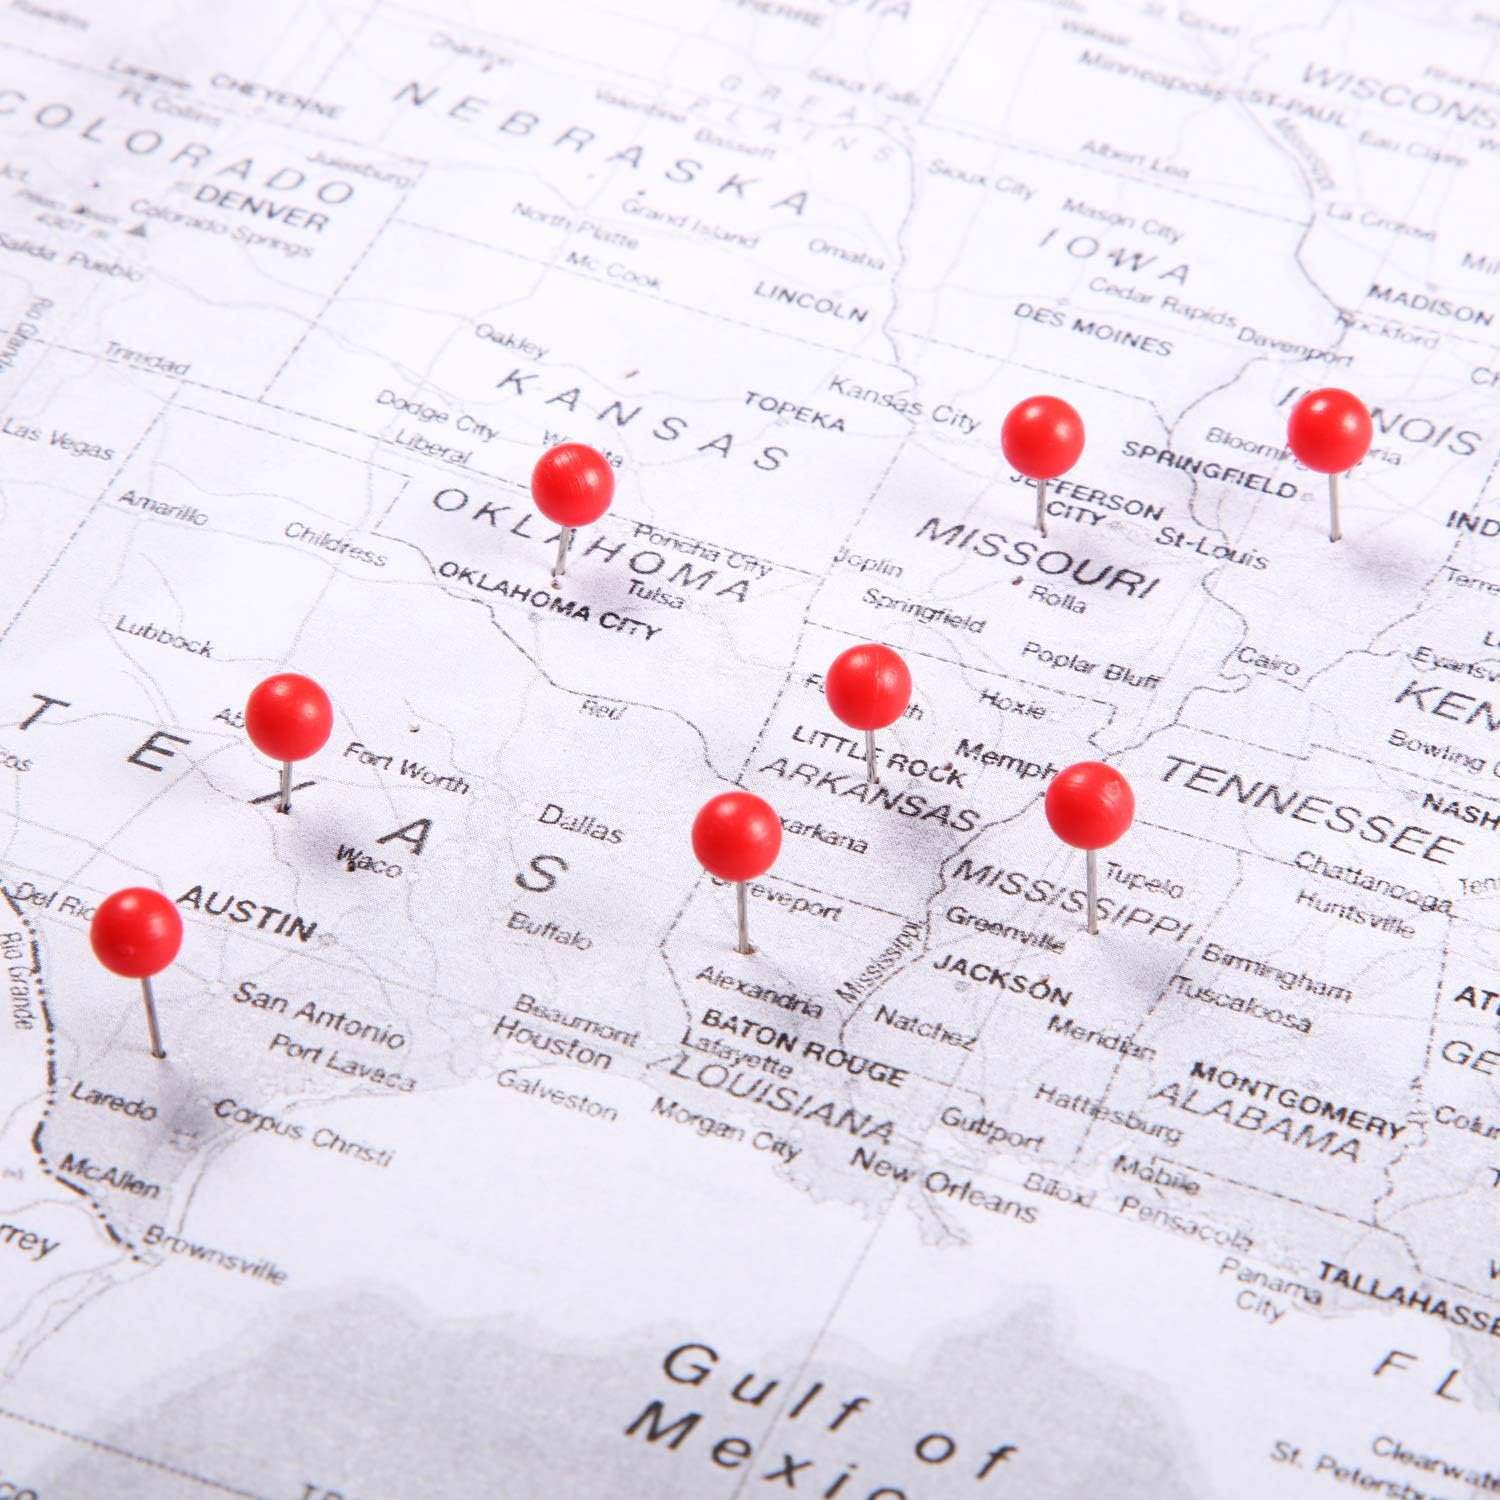 PIERRE
Minneapolis
ST-PAUL
WISCONS
Eau Claire
Chadron
GREAT
PLAINS
Sioux Falls
Valentine
Bassett
NEBRASKA
Laramie
CHEYENNE
Ft. Collins
COLORADO
Julesburg
DENVER
Colorado Springs
Salida
Pueblo
Albert Lea
Sioux City
Mason City
IOWA
La Crosse
Mississippi
North Platte
Grand Island
Omaha
Mc Cook
LINCOLN
Cedar Rapids
DES MOINES
Davenport
MADISON
Rockford
Rio Grande
Trinidad
Oakley
KANSAS
TOPEKA
Kansas City
Dodge City
Liberal
Las Vegas
SPRINGFIELD
JEFFERSON
CITY
St-Louis
IND
Amarillo
Childress
OKLAHOMA
Poncha City
Tulsa
OKLAHOMA CITY
MISSOURI
Joplin
Rolla
Springfield
Poplar Bluff
Cairo
Terre
Evansv
KEN
Bowling
Lubbock
Red
Hoxie
LITTLE ROCK
Memph
ARKANSAS
TENNESSEE
NASH
TEXAS
Fort Worth
Dallas
Waco
xarkana
Tupelo
MISSISSIPPI
Chattanooga
Huntsville
Del Rio
AUSTIN
Buffalo
eveport
Greenville
Birmingham
Rio Grande
San Antonio
Alexandria
Mississippi
JACKSON
Tuscaloosa
Port Lavaca
Beaumont
Houston
BATON ROUGE
Natchez
Meridian
GE
Laredo
Galveston
Lafayette
LOUISIANA
MONTGOMERY
ALABAMA
Colu
Corpus Christi
Morgan City
Gulfport
Hattiesburg
McAllen
New Orleans
Biloxi
Mobile
Pensacola
rrey
Brownsville
Panama
City
TALLAHASSE
Gulf of
Mexic
FL
Clearwat
St. Petersbu